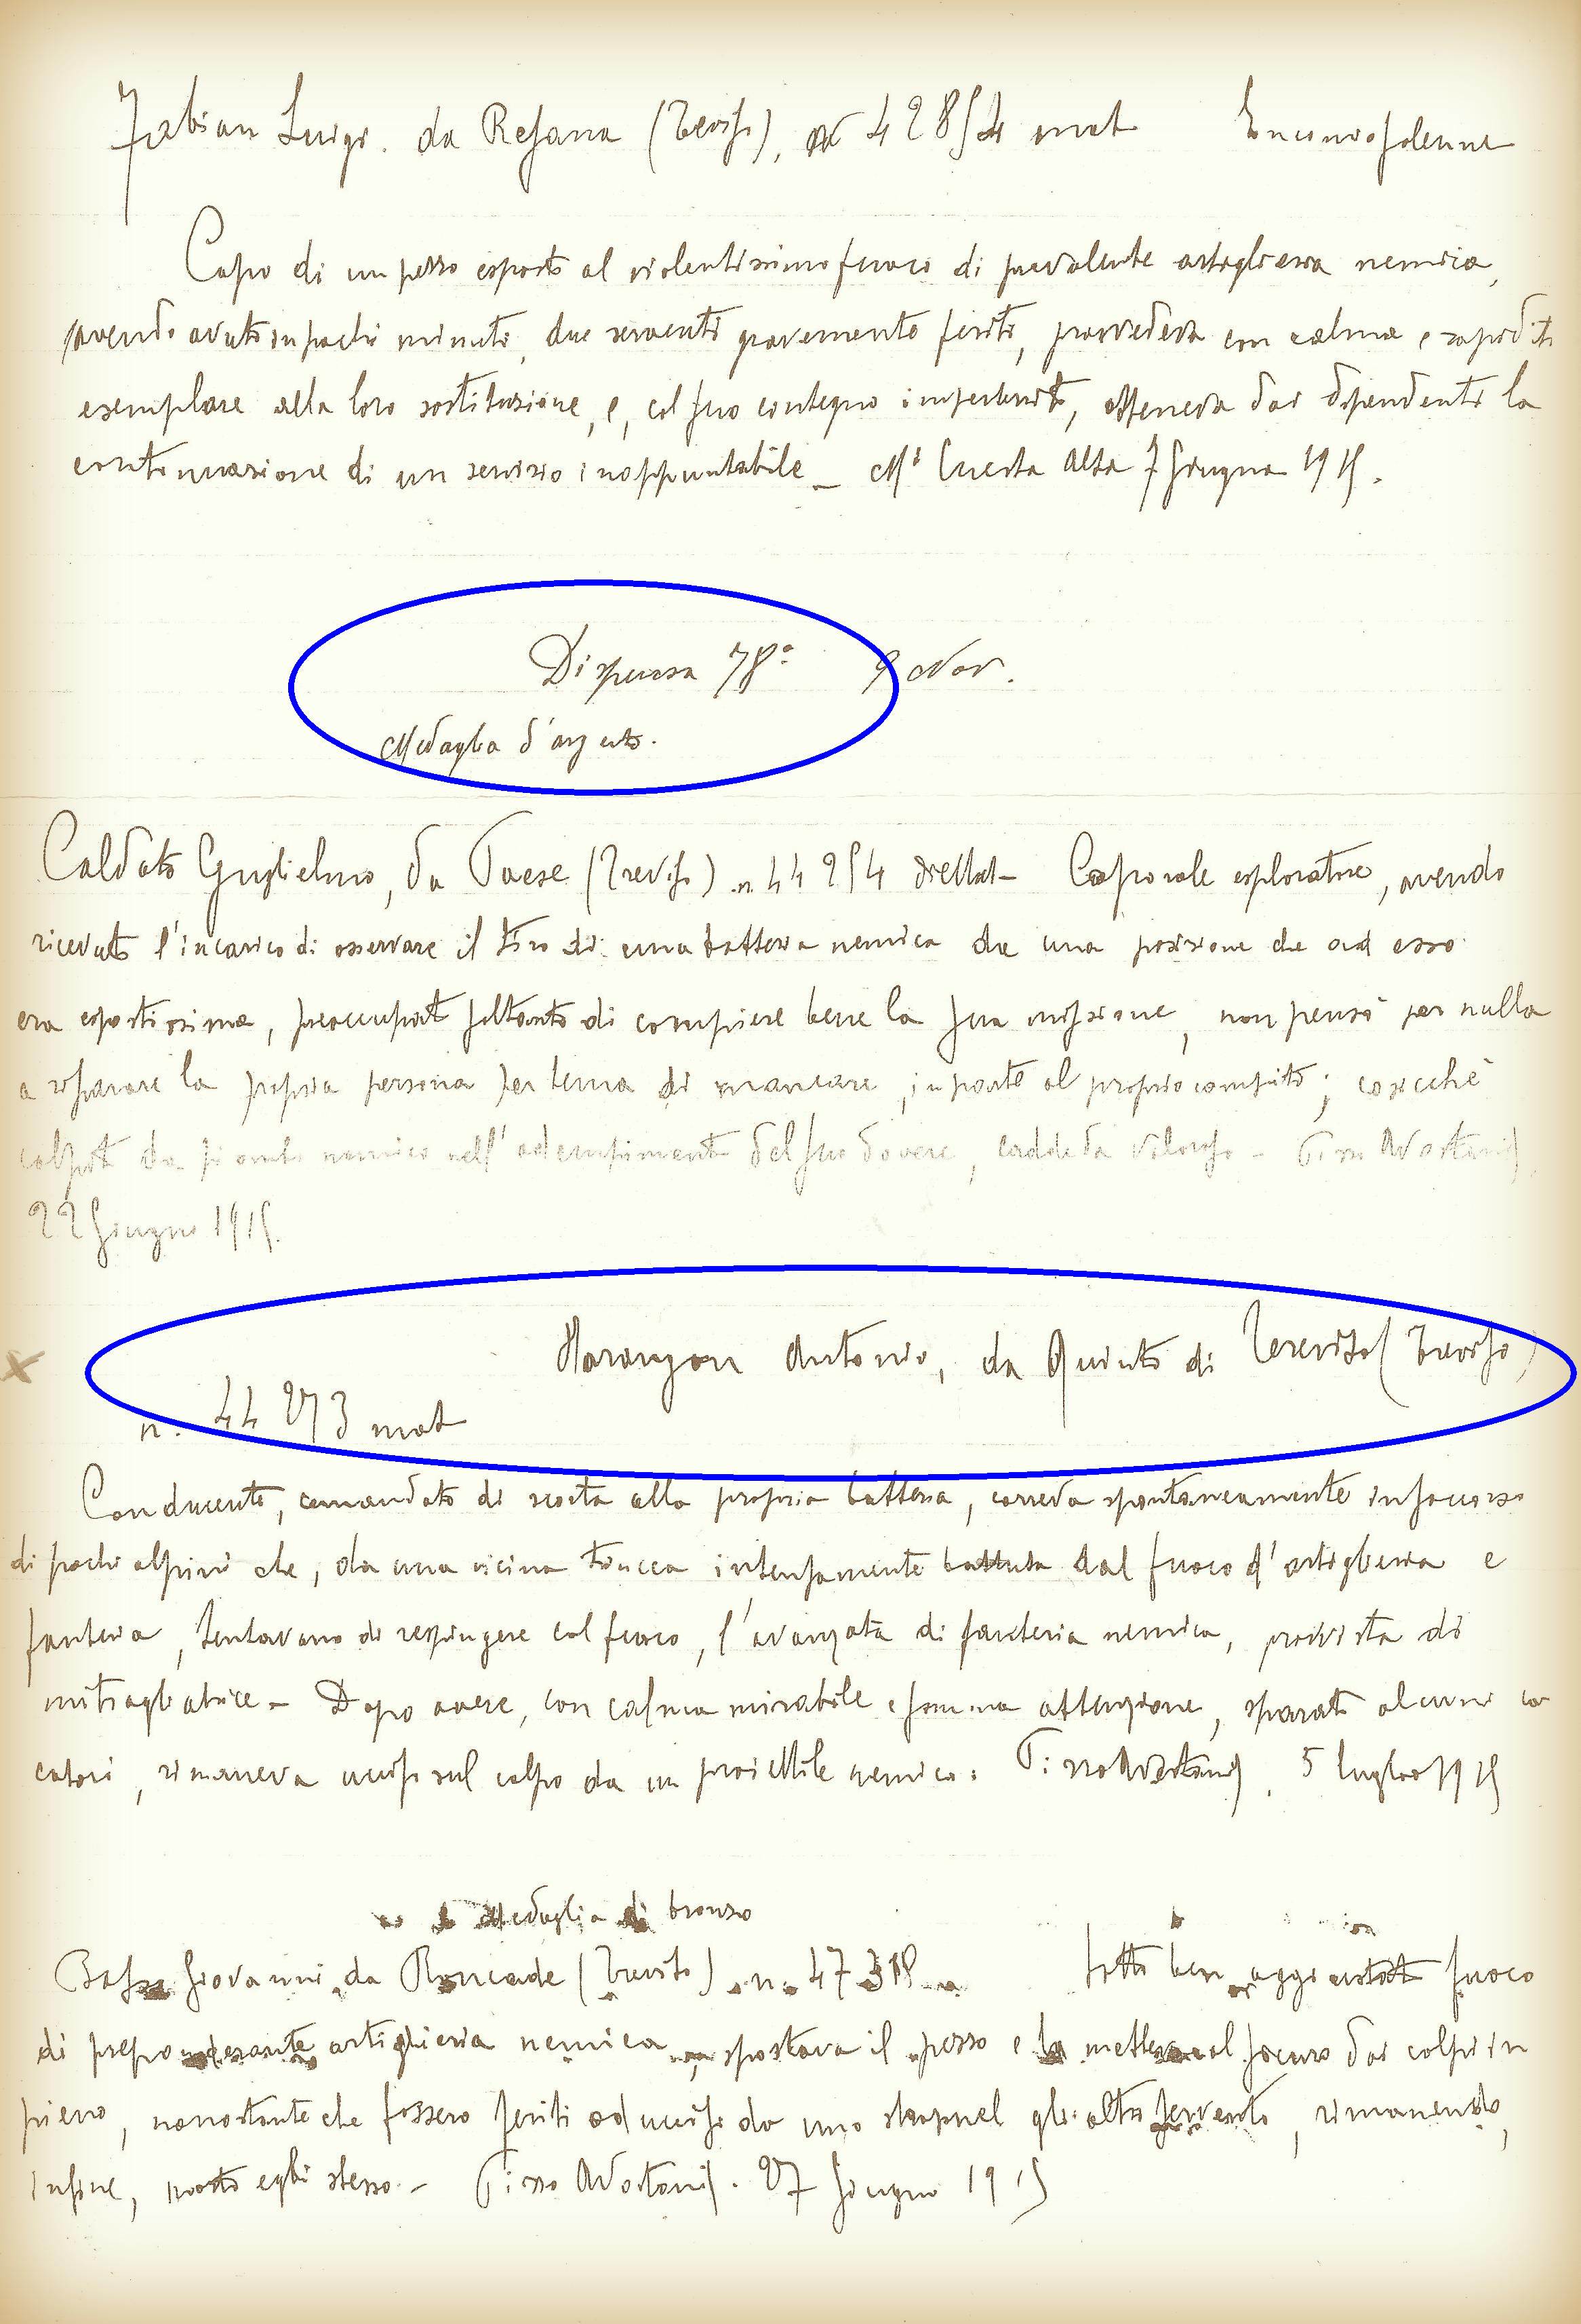 Fabian Luigi. da Resana (Treviso), N 42854 mat Encomio solenne
Capo di un pezzo esposto al violentissimo fuoco di prevalente artiglieria nemica,
avendo avuto in pochi minuti, due serventi gravemente feriti, provvedeva con calma e rapidità
esemplare alla loro sostituzione, e, col suo contegno imperterrito, otteneva dai dipendenti la
continuazione di un servizio inappuntabile _ Mt Cuesta Alta 7 Giugno 1915.
Dispensa 78ª 9 Nov.
Medaglia d'argento.
Caldato Guglielmo, da Paese (Treviso) n 44254 Caporale esploratore, avendo
ricevuto l'incarico di osservare il tiro di una batteria nemica da una posizione che ad esso
era espostissima, preoccupato soltanto di compiere bene la sua missione, non pensò per nulla
a riparare la propria persona per tema di mancare, in parte al proprio compito; cosicchè
colpito da piombo nemico nell'adempimento del suo dovere, cadde da valoroso - Pizzo Avostanis,
22 Giugno 1915.
Marangon Antonio, da Quinto di Treviso (Treviso)
n. 44273 mat
Conducente, comandato di scorta alla propria batteria, correva spontaneamente in soccorso
di pochi alpini che, da una vicina trincea intensamente battuta dal fuoco d'artiglieria e
fanteria, tentavano di respingere col fuoco, l'avanzata di fanteria nemica, provvista di
mitragliatrice - Dopo avere, con calma mirabile e somma attenzione, sparato alcuni ca
catori, rimaneva ucciso sul colpo da un proiettile nemico: Pizzo Avostanis, 5 luglio 1915
Medaglia di bronzo
Basso Giovanni da Roncade (Treviso) n. 47318 Sotto ben aggiustato fuoco
di preponderante artiglieria nemica, spostava il pezzo e lo metteva al sicuro dai colpi in
pieno, nonostante che fossero feriti od uccisi da uno shrapnel gli altri serventi, rimanendo,
infine, morto egli stesso - Pizzo Avostanis. 27 Giugno 1915